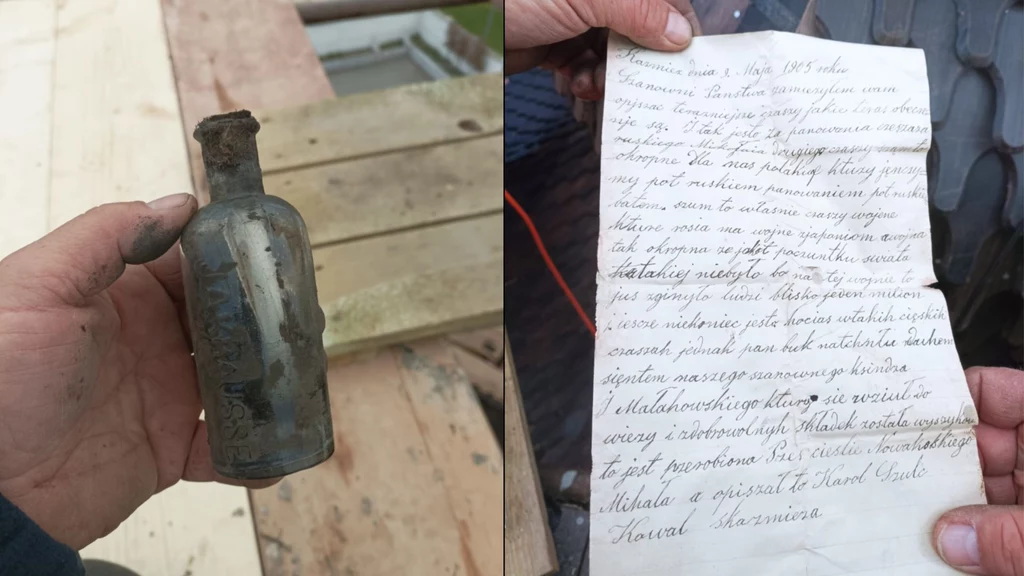 Kazmież dnia 2 Maja 1905 roku
Szanowni Państwa zamierzyłem wam
opisac terazniejsze czasy jakie teraz obecne
są. I tak jest za panowania
ruskiego Mikołaja drugiego czasy
okropne dla nas polakuf
my pot ruskiem panowaniem pot
batom. szum to własnie czasy wojne
kture rosia ma wojne zjaponiom awojna
tak okropna ze jak poczuntku swiata
takiej niebyło bo na tej wojnie to
jus zginyło ludzi blisko jeden milion
i iescze niekoniec jesta hocias wtakih cięskih
czaszah jednak pan buk natchnłu duchem
sięntem naszego szanownego ksindza
J Małahowskiego ktury sie wzioł do
wiezy i zdobrowolnyh składek została wyszykowa
to jest pzerobiona Pzes cieśle Nowaholskiego
Mihala a opiszał to Karol Szulc
Kowal skazmieza